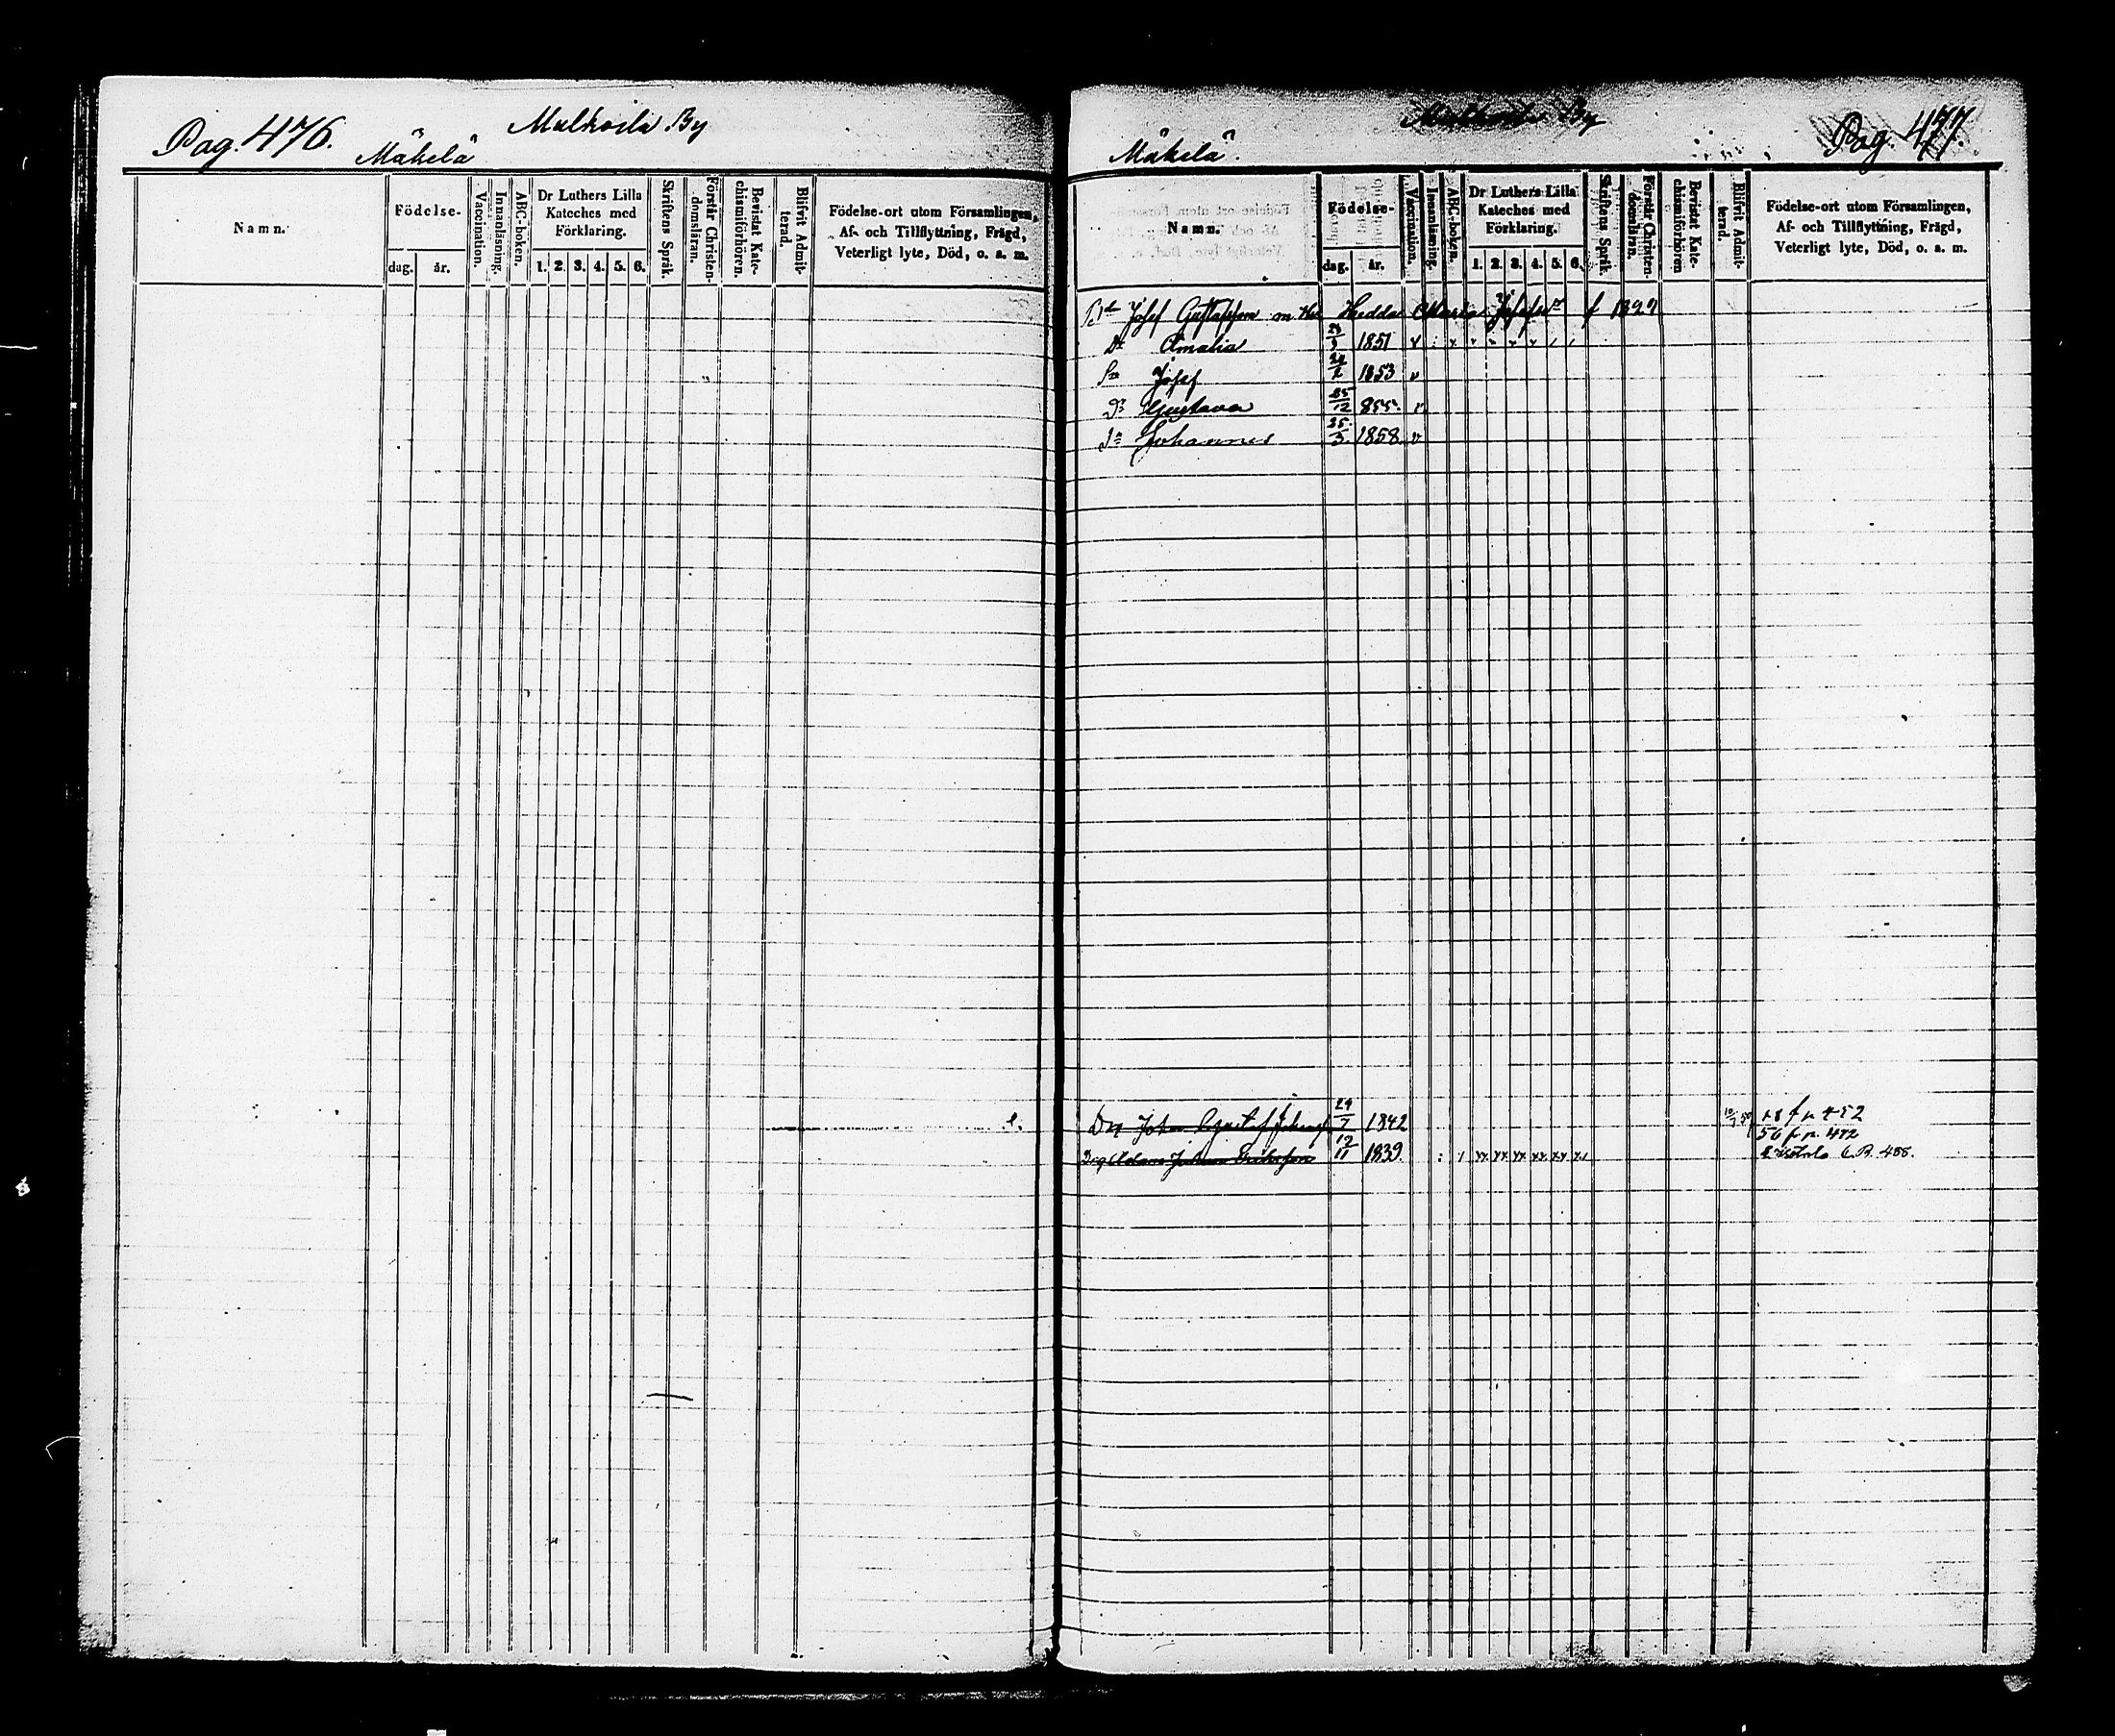 Pag. 476.
Mulkoila By
Mäkelä
Namn.
Födelse-
dag. år.
Vaccination.
Innanläsning.
ABC-boken.
Dr Luthers Lilla
Kateches med
Förklaring.
1. 2. 3. 4. 5. 6.
Skriftens Språk.
Förstår Christen-
domsläran.
Bevistat Kate-
chismiförhören.
Blifvit Admit-
terad.
Födelse-ort utom Församlingen,
Af- och Tillflyttning, Frägd,
Veterligt lyte, Död, o. s. m.
Mulkoila By
Pag. 477.
Mäkelä.
Namn.
Födelse-
dag. år.
Vaccination.
Innanläsning.
ABC-boken.
Dr Luthers Lilla
Kateches med
Förklaring.
1. 2. 3. 4. 5. 6.
Skriftens Språk.
Förstår Christen-
domsläran.
Bevistat Kate-
chismiförhören
Blifvit Admit-
terad.
Födelse-ort utom Församlingen,
Af- och Tillflyttning, Frägd,
Veterligt lyte, Död, o. s. m.
Josef Gustafsson m. Hu Hedda Maria Josefsdr f 1827
Dr Amalia 1851
Sn Josef 1853
Dr Gustava 25/12 855.
Sn Johannes 25/3 1858
Johan Gustaf 29/7 1842
56 fr p. 472
Adam Johan Eriksson 12/11 1839.
C.B. 488.